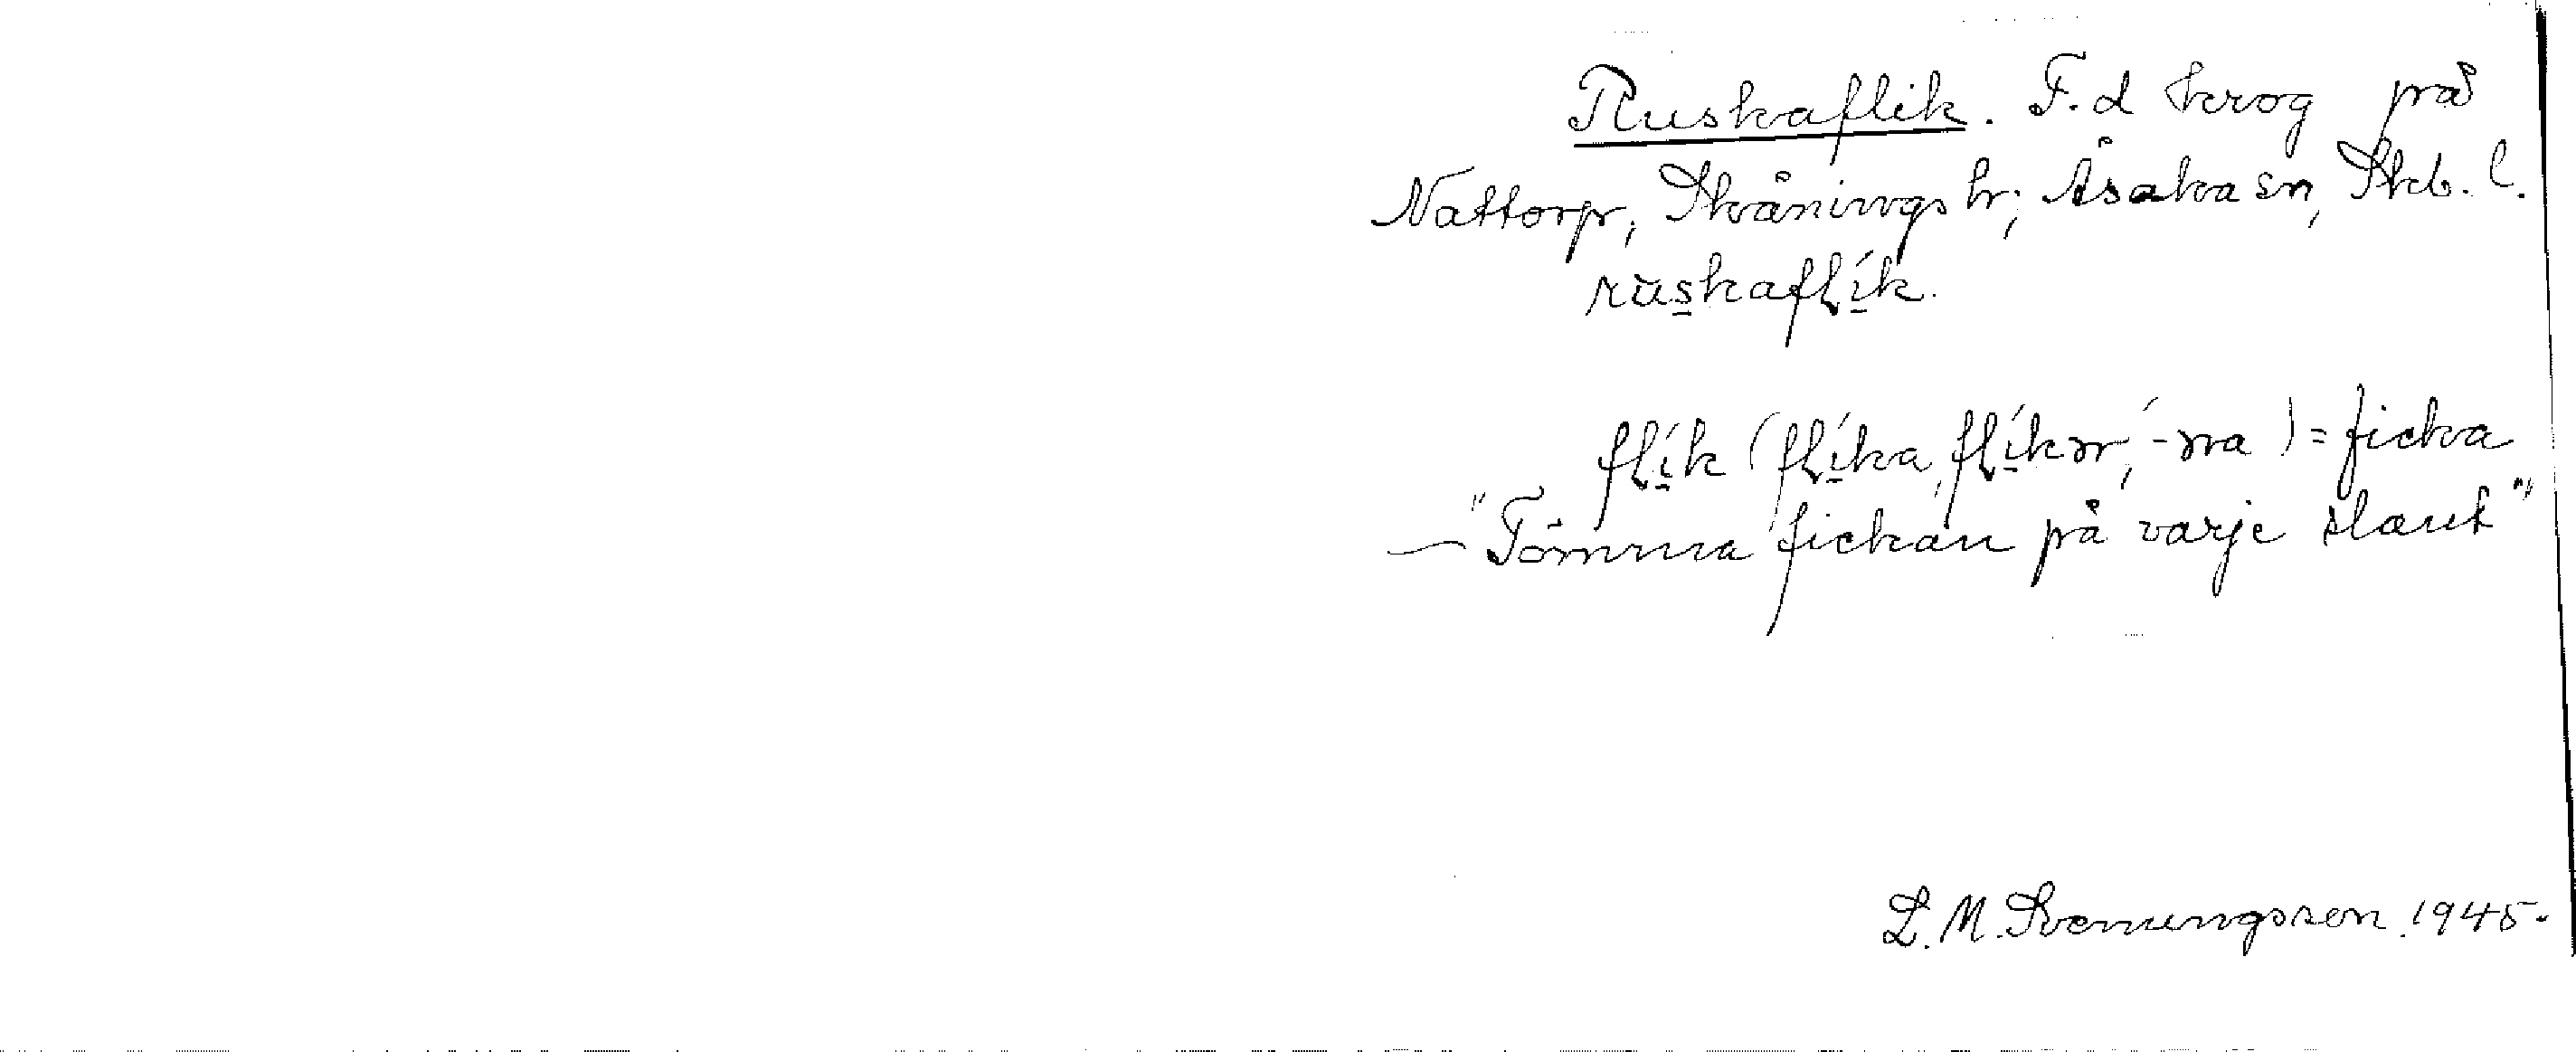 Ruskaflik. F.d krog på
Nattorp, Skånings hr; Åsaka sn, Skb. l.
ruskaflík.
flík (flíka, flíkɴr, -ɴra) = ficka
— "Tömma fickan på varje slant"
L. M. Svenungsson. 1945.